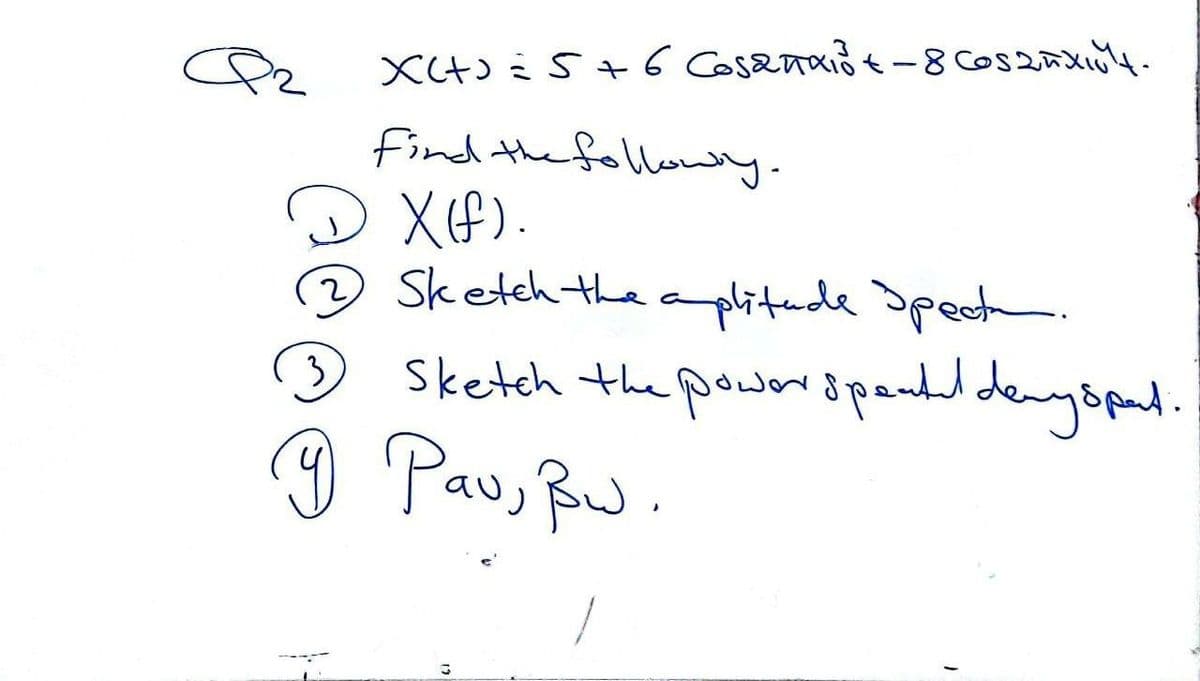 Q2 X(t) = 5 + 6 Cos2π×10³t – 8 Cos2π×10⁴t.
Find the following.
① X(f).
② Sketch the amplitude Spectrum.
③ Sketch the power spectral density spect.
④ Pav, Bw.